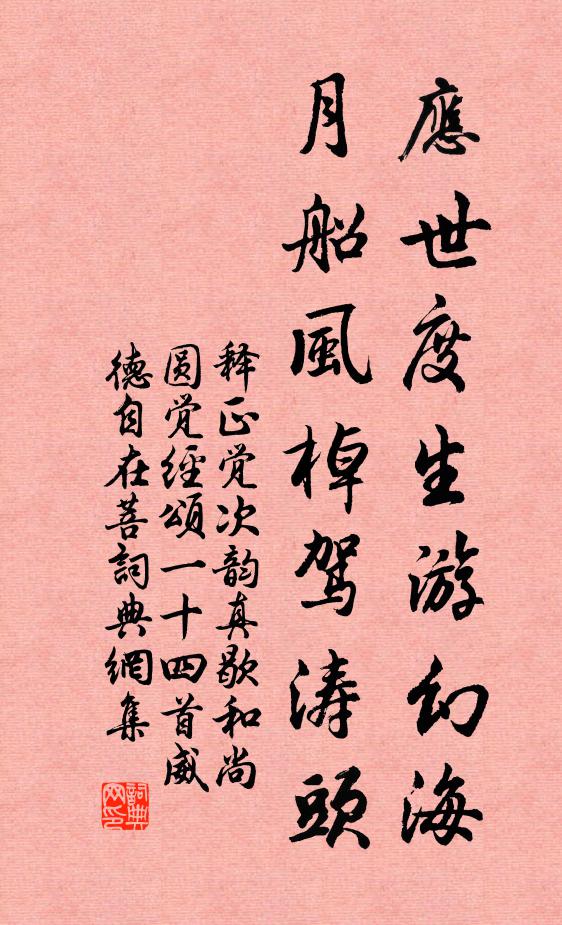 應世度生游幻海
月船風棹駕濤頭
释正觉次韵真歇和尚
圆觉經頌一十四首威
德自在菩詞典網集
詞典网印